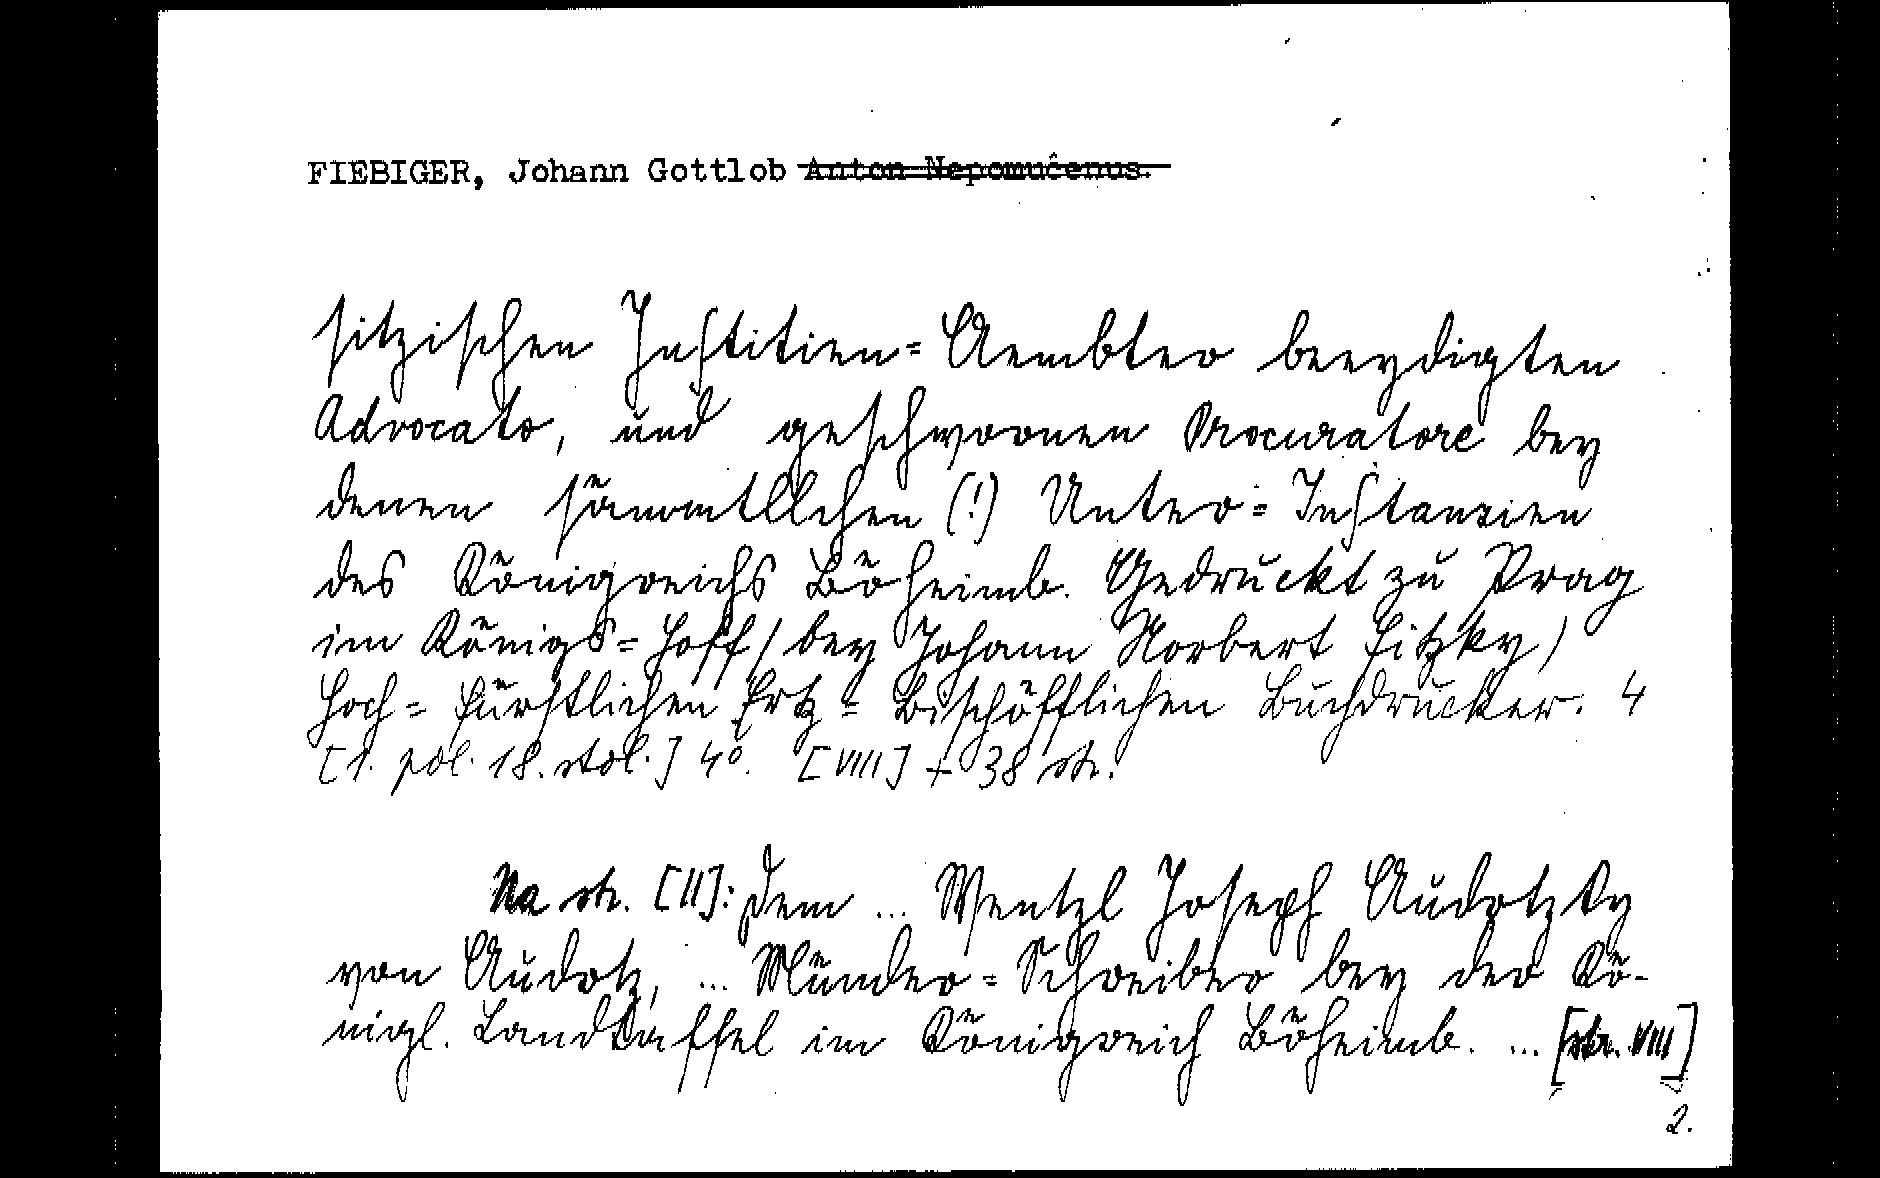 FIEBIGER, Johann Gottlob Anton Nepomucenus.
sitzischen Justitien=Aembter beeydigten
Advocato, und geschwornen Procuratore bey
denen sämmtllchen (!) Unter=Instanzien
des Königreichs Böheimb. Gedruckt zu Prag
im Königs=Hoff/ bey Johann Norbert Fitzky/
Hoch=Fürstlichen Ertz=Bischöfflichen Buchdrucker. 4
[1. pol. 18. stol.] 4°. [VIII] + 38 str.
Na str. [II]: Dem ... Wentzl Joseph Audrtzky
von Audrtz, ... Münder=Schreiber bey der Kö-
nigl. Landtaffel im Königreich Böheimb. ... [str. VIII]
2.